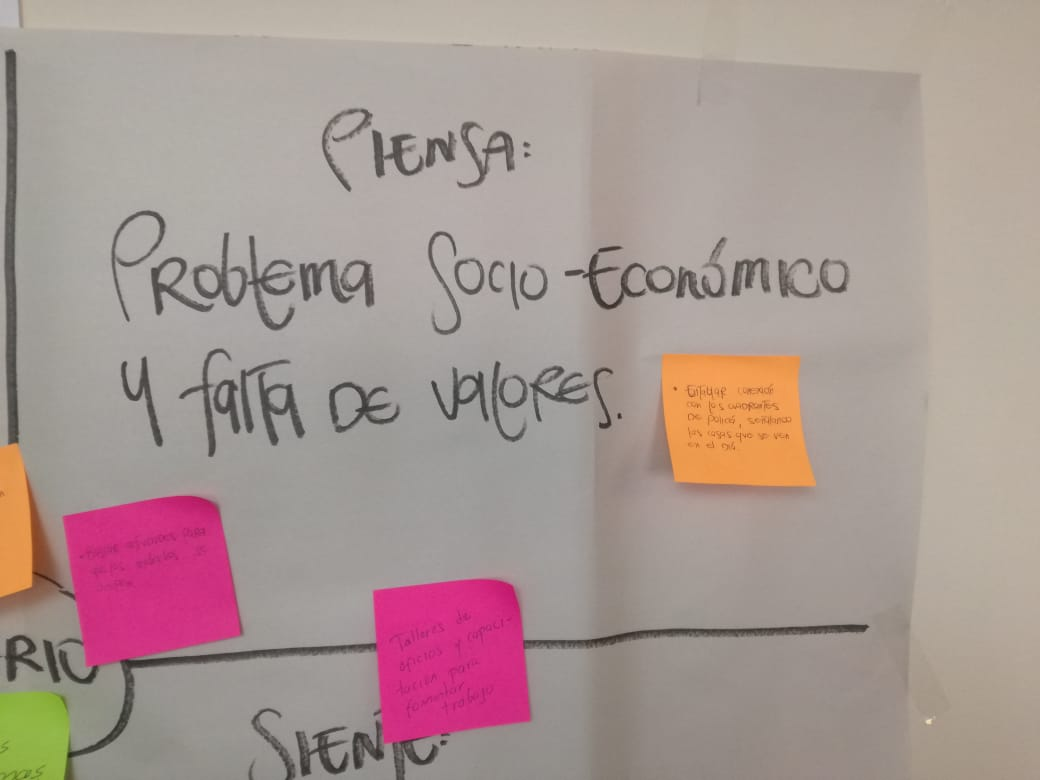 PIENSA:
Problema Socio-Económico
y falta de valores.
• Entablar conexión
con los cuadrantes
de policía, señalando
las cosas que se ven
en el día
para
que los
Talleres de
oficios y capaci-
tación para
fomentar
trabajo
RIO
SIENTE: